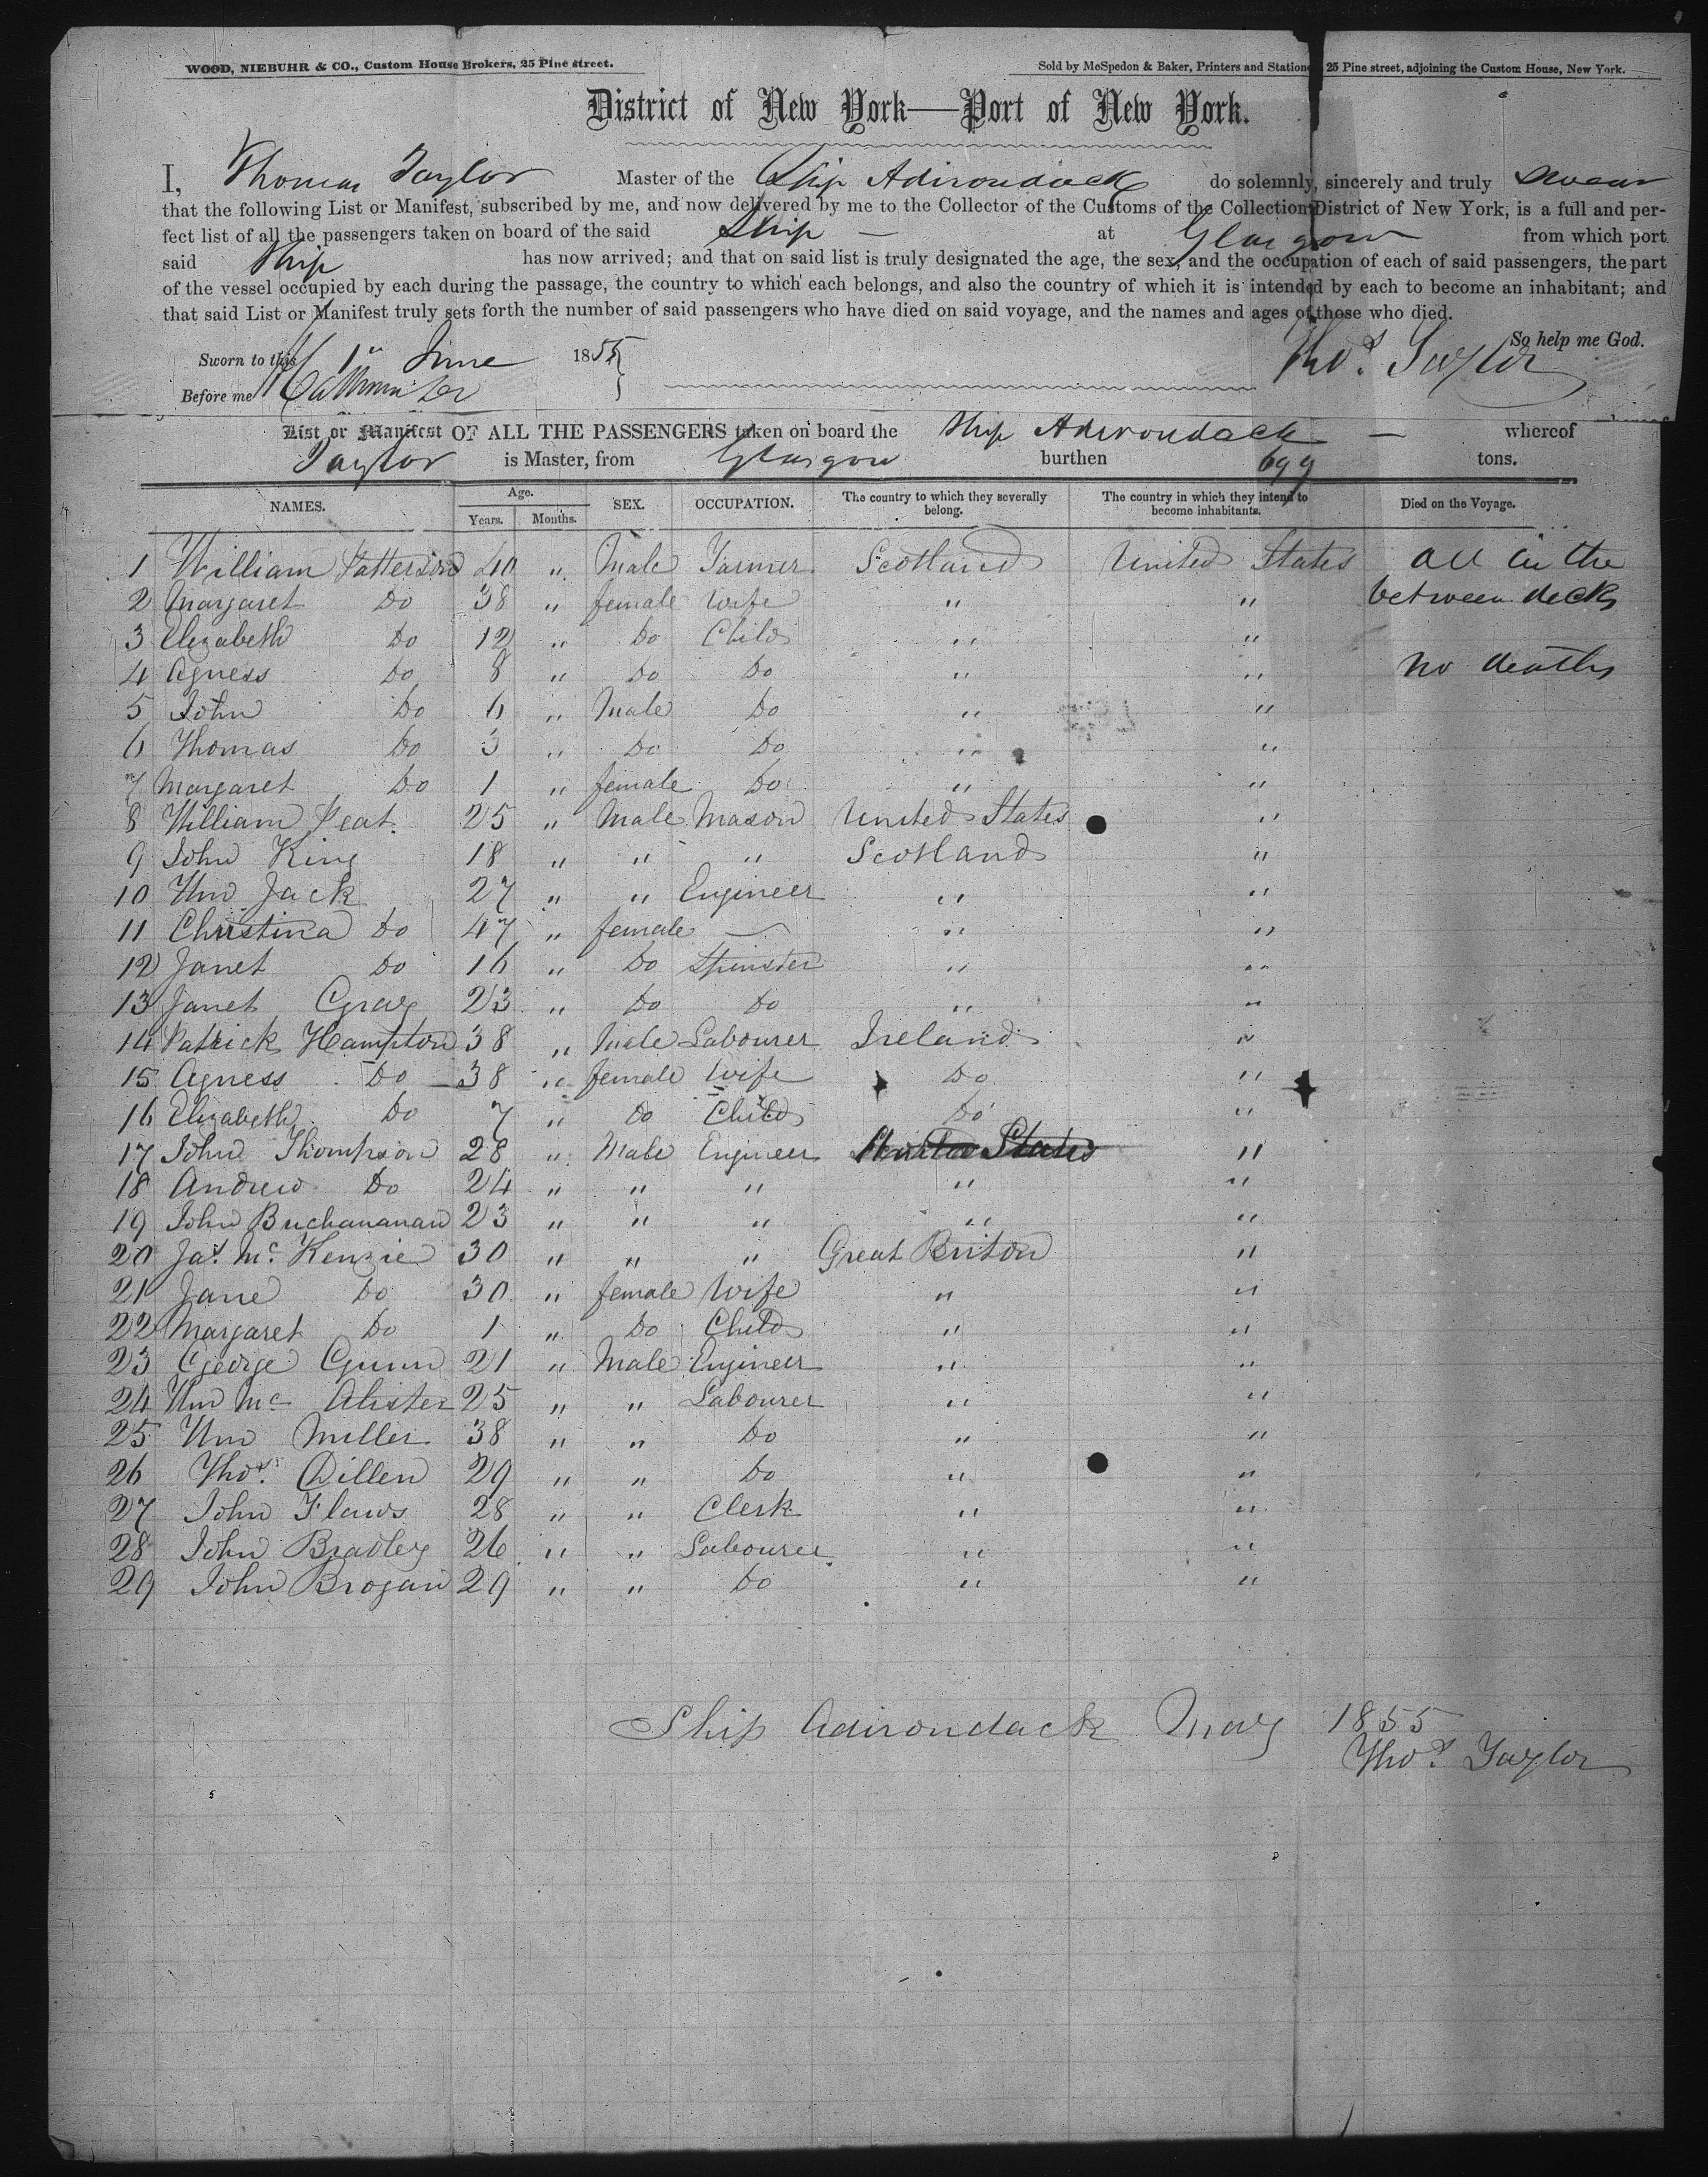 WOOD, NIEBUHR & CO., Custom House Brokers, 25 Pine street. Sold by McSpedon & Baker, Printers and Statione 25 Pine street, adjoining the Custom House, New York.
District of New York—Port of New York.
I, Thomas Taylor Master of the Ship Adirondack do solemnly, sincerely and truly swear
that the following List or Manifest, subscribed by me, and now delivered by me to the Collector of the Customs of the Collection District of New York, is a full and per-
fect list of all the passengers taken on board of the said Ship — at Glasgow from which port
said Ship has now arrived; and that on said list is truly designated the age, the sex, and the occupation of each of said passengers, the part
of the vessel occupied by each during the passage, the country to which each belongs, and also the country of which it is intended by each to become an inhabitant; and
that said List or Manifest truly sets forth the number of said passengers who have died on said voyage, and the names and ages of those who died.
So help me God.
Sworn to this 1st June 1855 Thos. Taylor
Before me
List or Manifest OF ALL THE PASSENGERS taken on board the Ship Adirondack — whereof
Taylor is Master, from Glasgow burthen 699 tons.
NAMES. Age. Years. Months. SEX. OCCUPATION. The country to which they severally belong. The country in which they intend to become inhabitants. Died on the Voyage.
1 William Patterson 40 " Male Farmer Scotland United States all in the
2 Margaret Do 38 " female Wife " " between decks
3 Elizabeth Do 12 " Do Child " "
4 Agness Do 8 " Do Do " " No deaths
5 John Do 6 " Male Do " "
6 Thomas Do 3 " Do Do " "
7 Margaret Do 1 " female Do " "
8 William Peat 25 " Male Mason United States "
9 John King 18 " " " Scotland "
10 Wm Jack 27 " " Engineer " "
11 Christina Do 47 " female — " "
12 Janet Do 16 " Do Spinster " "
13 Janet Gray 23 " Do Do " "
14 Patrick Hampton 38 " Male Labourer Ireland "
15 Agness Do 38 " female Wife Do "
16 Elizabeth Do 7 " Do Child Do "
17 John Thompson 28 " Male Engineer United States "
18 Andrew Do 24 " " " " "
19 John Buchananan 23 " " " " "
20 Jas. Mc. Kenzie 30 " " " Great Briton "
21 Jane Do 30 " female Wife " "
22 Margaret Do 1 " Do Child " "
23 George Gunn 21 " Male Engineer " "
24 Wm Mc Alister 25 " " Labourer " "
25 Wm Miller 38 " " Do " "
26 Thos. Dillen 29 " " Do " "
27 John Flaws 28 " " Clerk " "
28 John Bradley 26 " " Labourer " "
29 John Brogan 29 " " Do " "
Ship Adirondack May 1855
Thos. Taylor